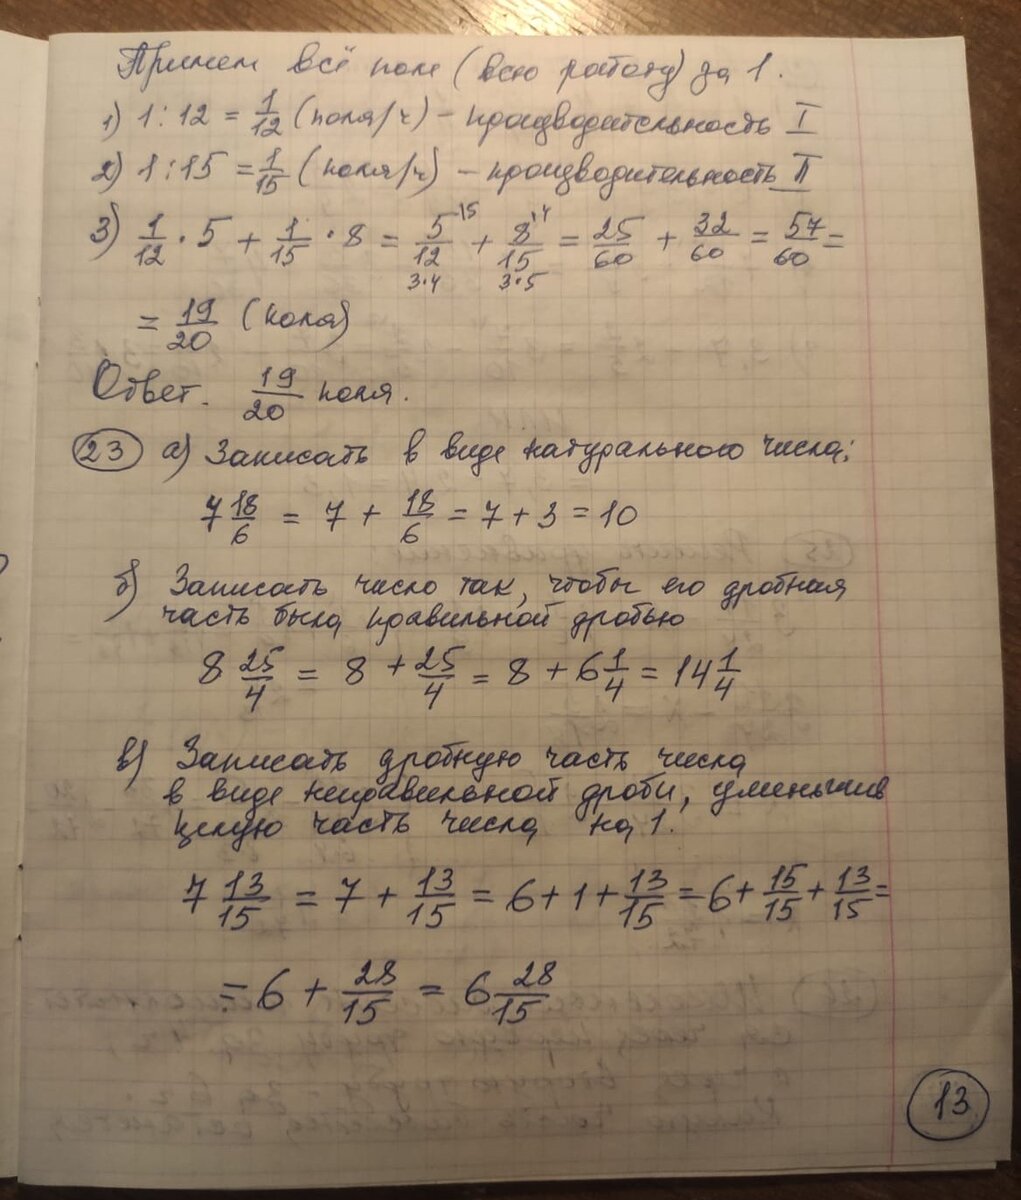 Примем всё поле (всю работу) за 1.
1) 1 : 12 = 1/12 (поля/ч) – производительность I
2) 1 : 15 = 1/15 (поля/ч) – производительность II
3) 1/12 · 5 + 1/15 · 8 = 5/12 + 8/15 = 25/60 + 32/60 = 57/60 =
3·4 3·5
= 19/20 (поля)
Ответ. 19/20 поля.
23 а) Записать в виде натурального числа:
7 18/6 = 7 + 18/6 = 7 + 3 = 10
б) Записать число так, чтобы его дробная
часть была правильной дробью
8 25/4 = 8 + 25/4 = 8 + 6 1/4 = 14 1/4
в) Записать дробную часть числа
в виде неправильной дроби, уменьшив
целую часть числа на 1.
7 13/15 = 7 + 13/15 = 6 + 1 + 13/15 = 6 + 15/15 + 13/15 =
= 6 + 28/15 = 6 28/15
13